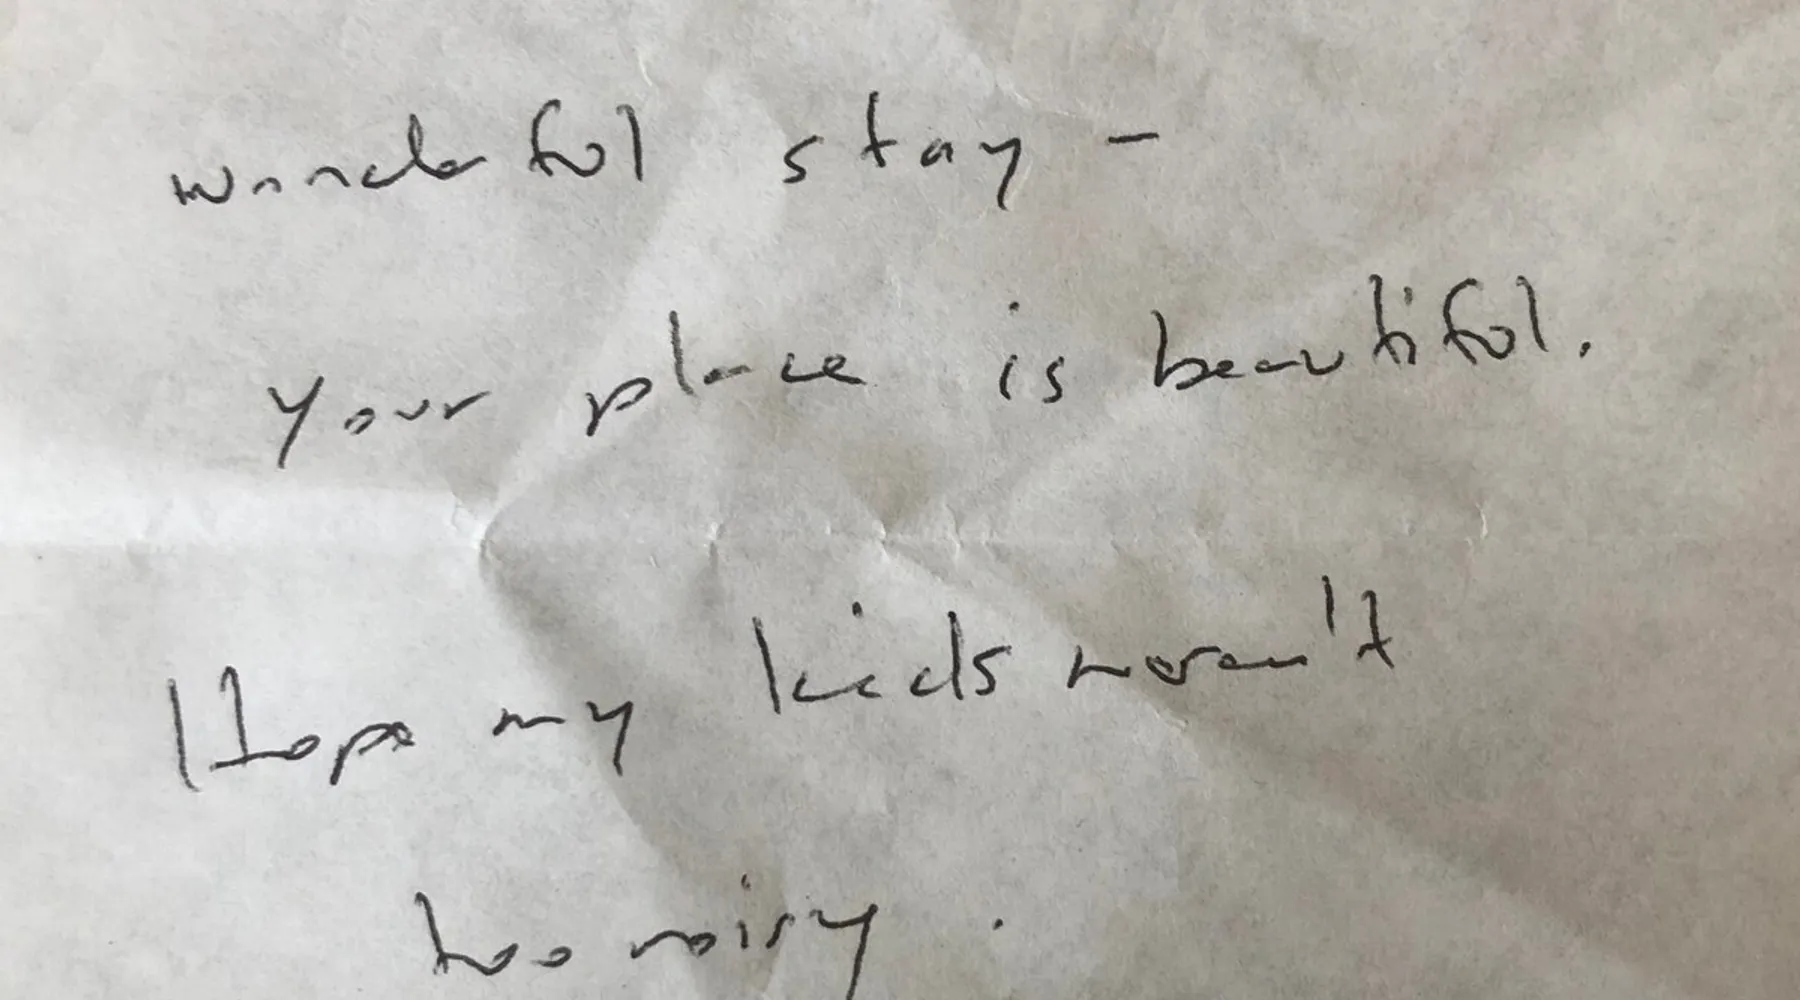 wonderful stay -
your place is beautiful.
Hope my kids weren't
too noisy.